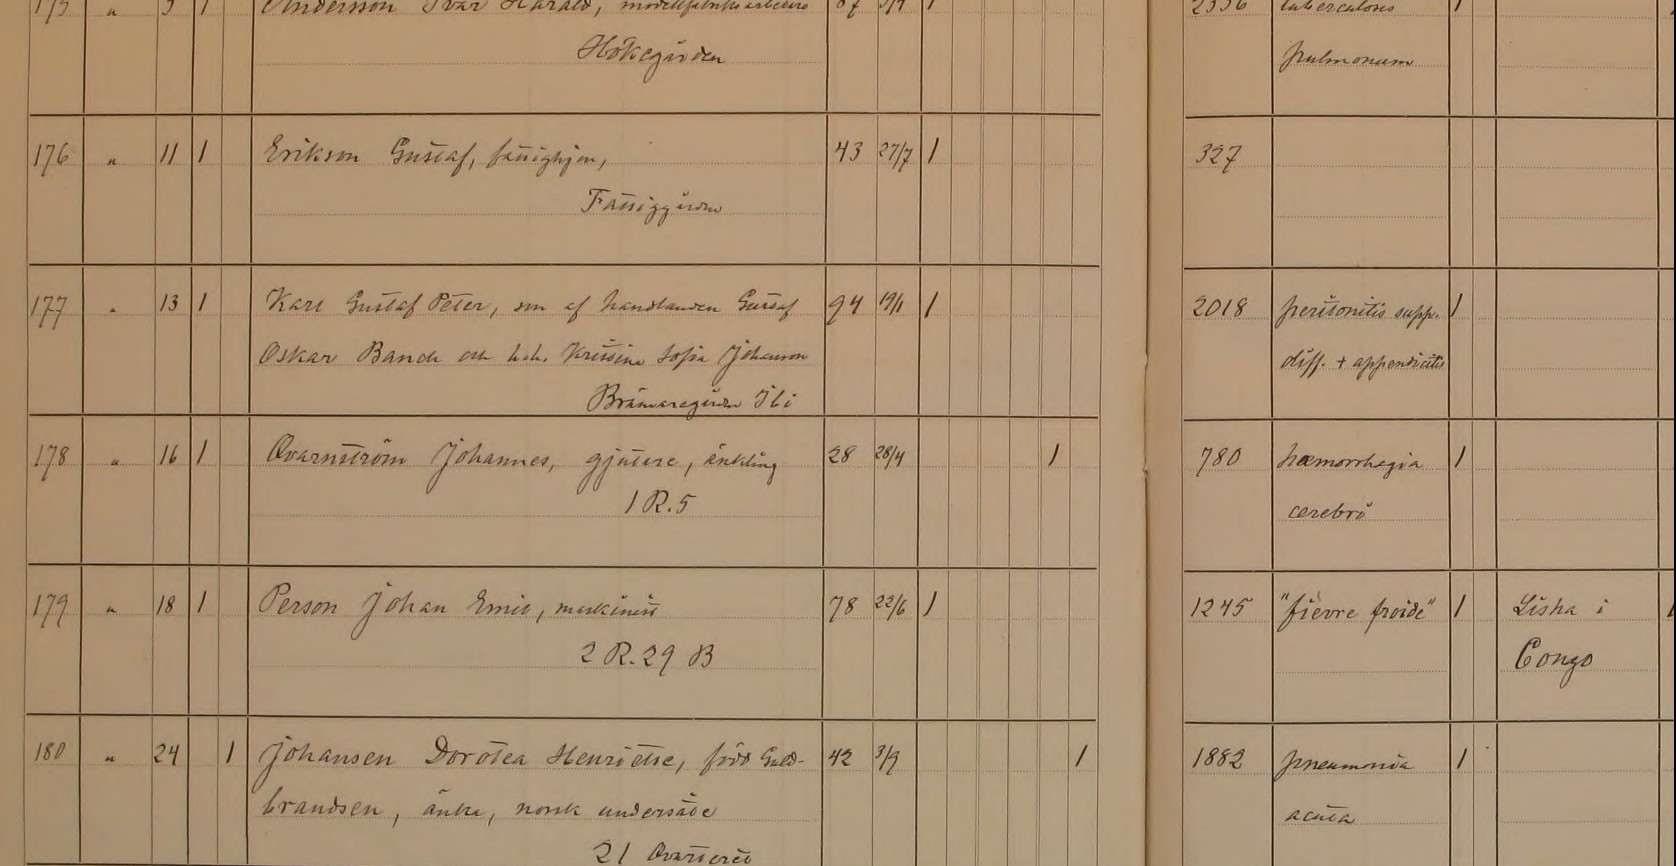 175 " 9 1 Andersson Ivar Harald, modellfabriksarbetare 87 1 2336 tuberculosis 1
Hökegården pulmonum
176 " 11 1 Erikson Gustaf, fattighjon, 43 27/7 1 327
Fattiggården
177 " 13 1 Karl Gustaf Peter, son af handlanden Gustaf 94 19/1 1 2018 peritonitis supp. 1
Oskar Banck och h.h. Kristina Sofia Johanson diff. + appendicitis
Brämaregården
178 " 16 1 Qvarnström Johannes, gjutare, änkling 28 28/4 1 780 hæmorrhagia 1
1 R. 5 cerebri
179 " 18 1 Person Johan Emil, maskinist 78 22/6 1 1245 "fievre froide" 1 Lisha i
2 R. 29 B Congo
180 " 24 1 Johansen Dorotea Henriette, född Guld- 42 3/9 1 1882 pneumonia 1
brandsen, änka, norsk undersåte acuta
21 Qvarteret